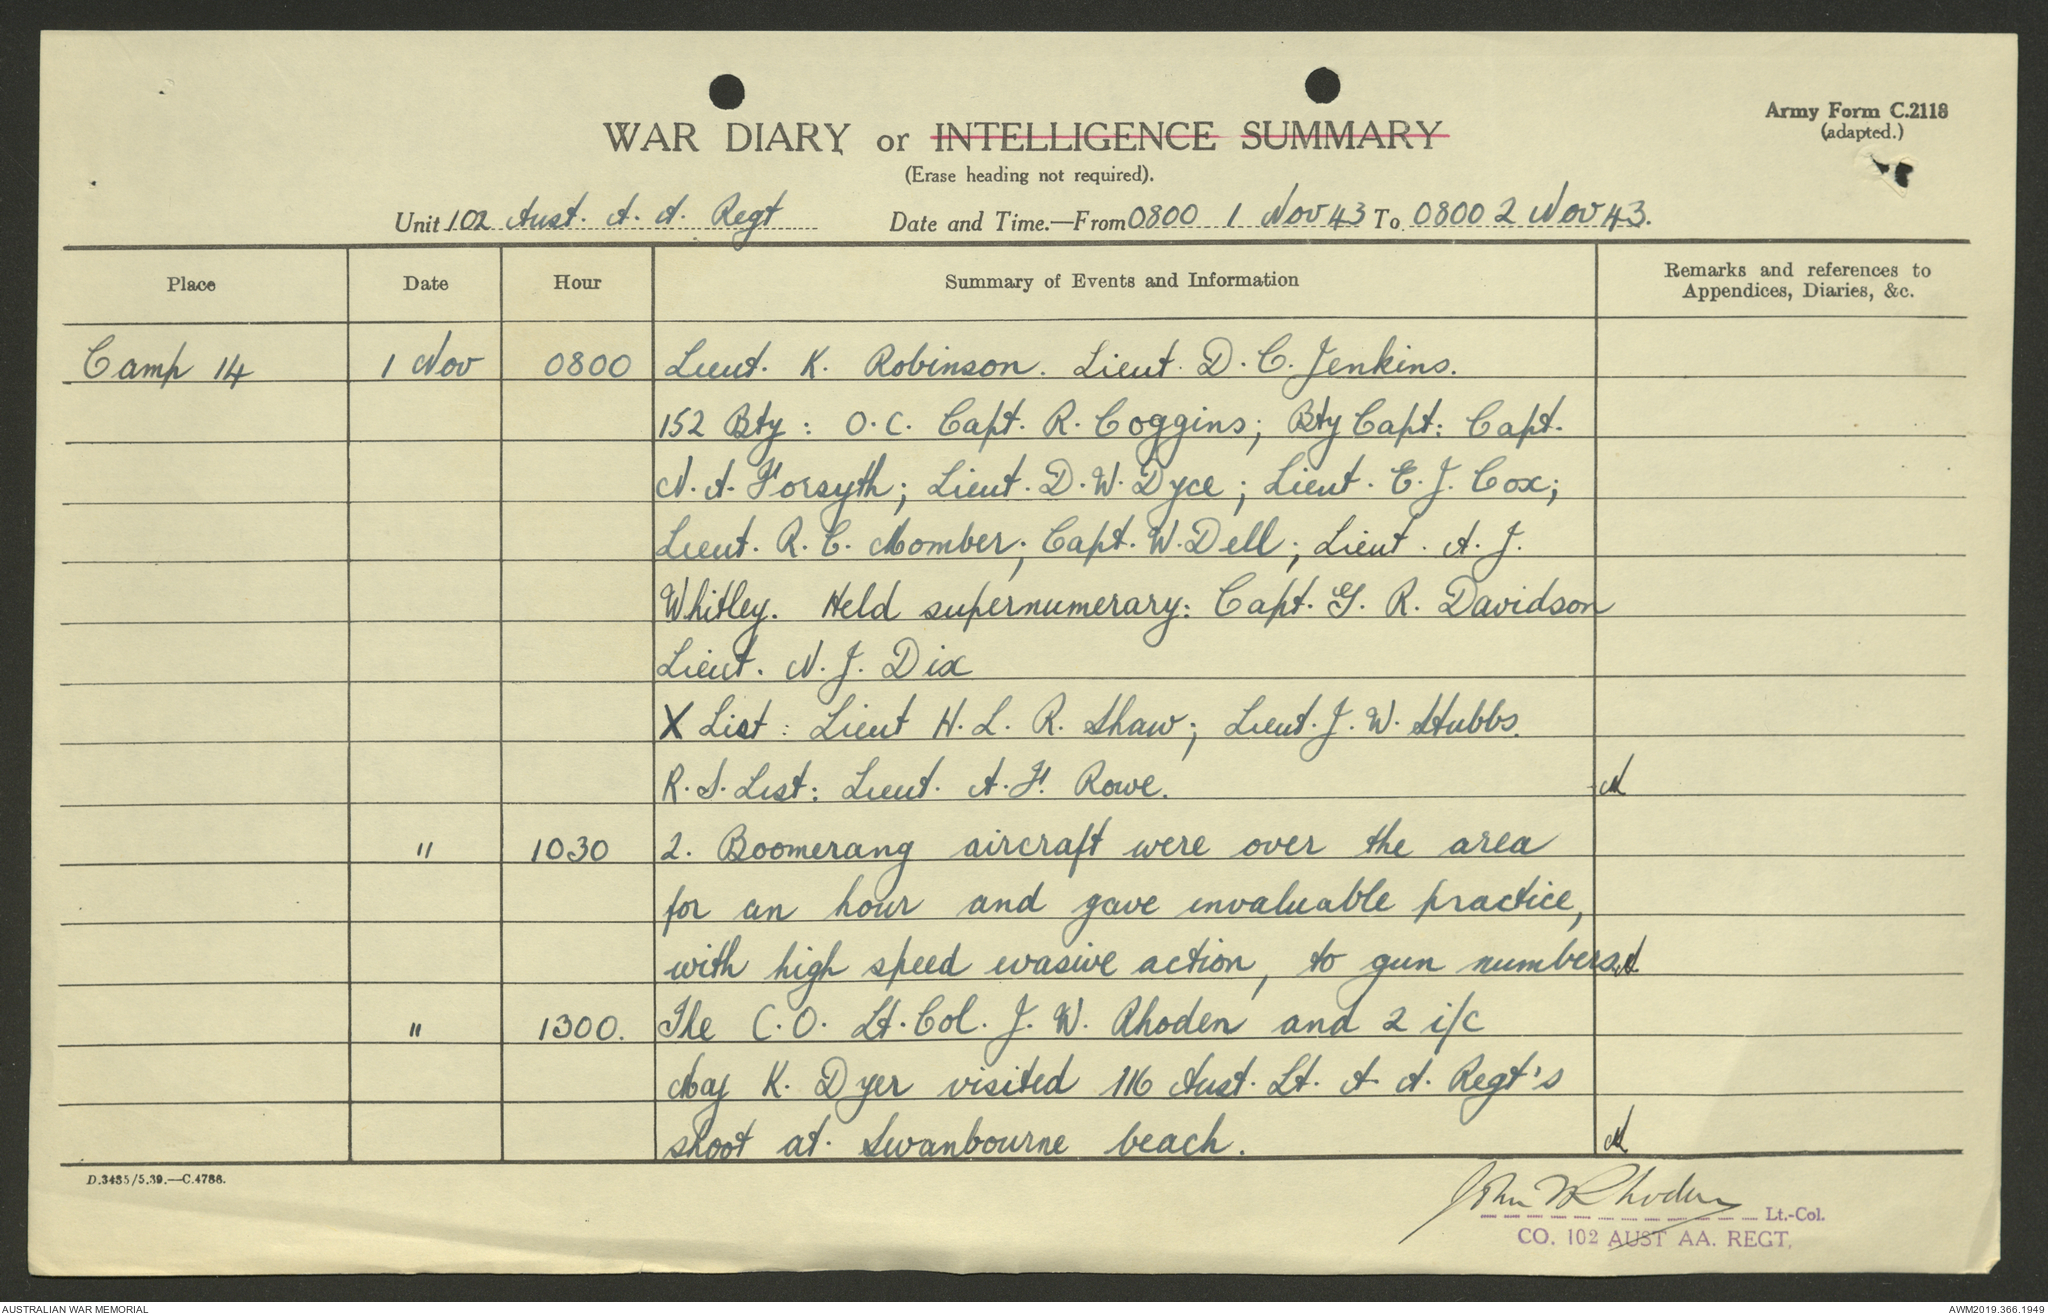 Army Form C.2118
(adapted.)
WAR DIARY or INTELLIGENCE SUMMARY
(Erase heading not required).
Unit 102 Aust. A. A. Regt Date and Time.—From 0800 1 Nov 43 To 0800 2 Nov 43.
Place Date Hour Summary of Events and Information Remarks and references to
Appendices, Diaries, &c.
Camp 14 1 Nov 0800 Lieut. K. Robinson. Lieut. D. C. Jenkins.
152 Bty: O.C. Capt. R. Coggins; Bty Capt: Capt.
N. A. Forsyth; Lieut. D. W. Dyce; Lieut. E. J. Cox;
Lieut. R. C. Momber; Capt. W. Dell; Lieut. A. J.
Whitley. Held supernumerary: Capt. G. R. Davidson
Lieut. N. J. Dix
X List: Lieut H. L. R. Shaw; Lieut. J. W. Stubbs.
R. S. List: Lieut. A. F. Rowe.
" 1030 2. Boomerang aircraft were over the area
for an hour and gave invaluable practice,
with high speed evasive action, to gun numbers.
" 1300. The C.O. Lt. Col. J. W. Rhoden and 2 i/c
Maj K. Dyer visited 116 Aust. Lt. A. A. Regt's
shoot at Swanbourne beach.
D.3485/5.39.—C.4788.
John W Rhoden Lt.-Col.
CO. 102 AUST AA. REGT.
AUSTRALIAN WAR MEMORIAL AWM2019.366.1949